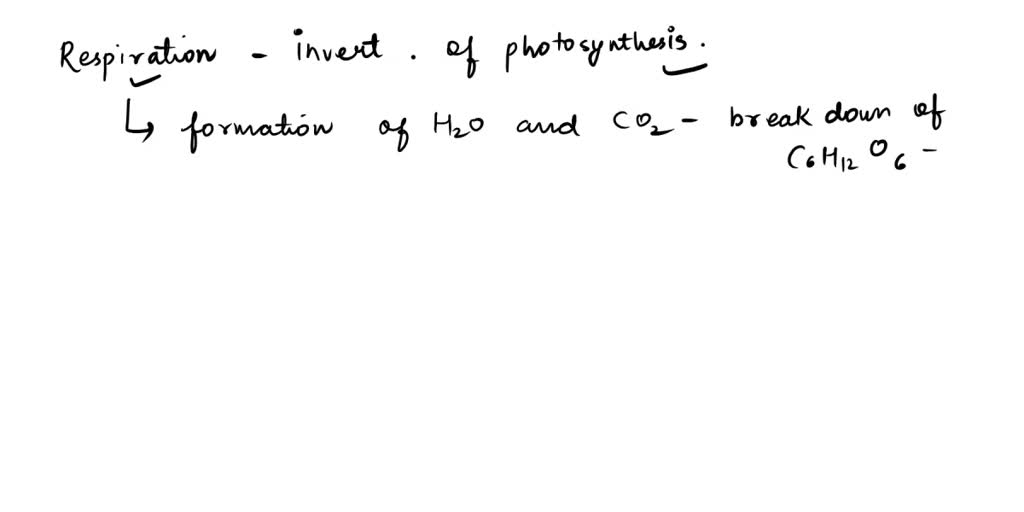 Respiration - invert . of photosynthesis.
↳ formation of H₂O and CO₂ - break down of
C₆H₁₂O₆ -